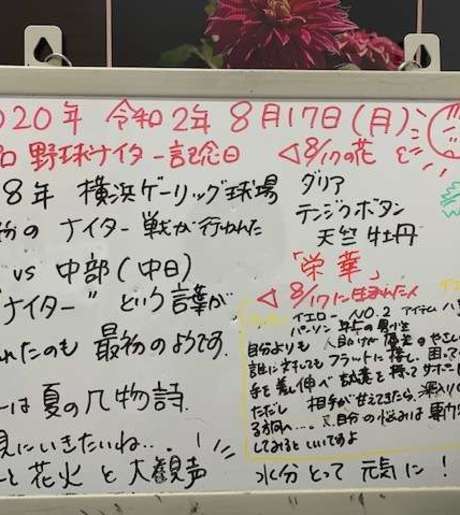 020年 令和2年 8月17日(月)
野球ナイター記念日 ◁8/17の花
8年 横浜ゲーリッグ球場
ナイター戦が行われた
VS 中部(中日)
ナイター" という言葉が
れたのも 最初のようです.
は夏の風物詩.
見にいきたいね...
と花火 と 大観声
ダリア
テンジクボタン
天竺牡丹
「栄華」
◁8/17に生まれた人
イエロー NO.2 アイテム
パーソン 年上の男性
自分よりも 人助けが 優先の やさしい
誰に対してもフラットに接し、困って
手を差し伸べ 誠意を持って サポート
ただし 相手が甘えてきたら、深入り
る方向へ... 又、自分の悩みは専門
してみると いいですよ
水分とって 元気に!